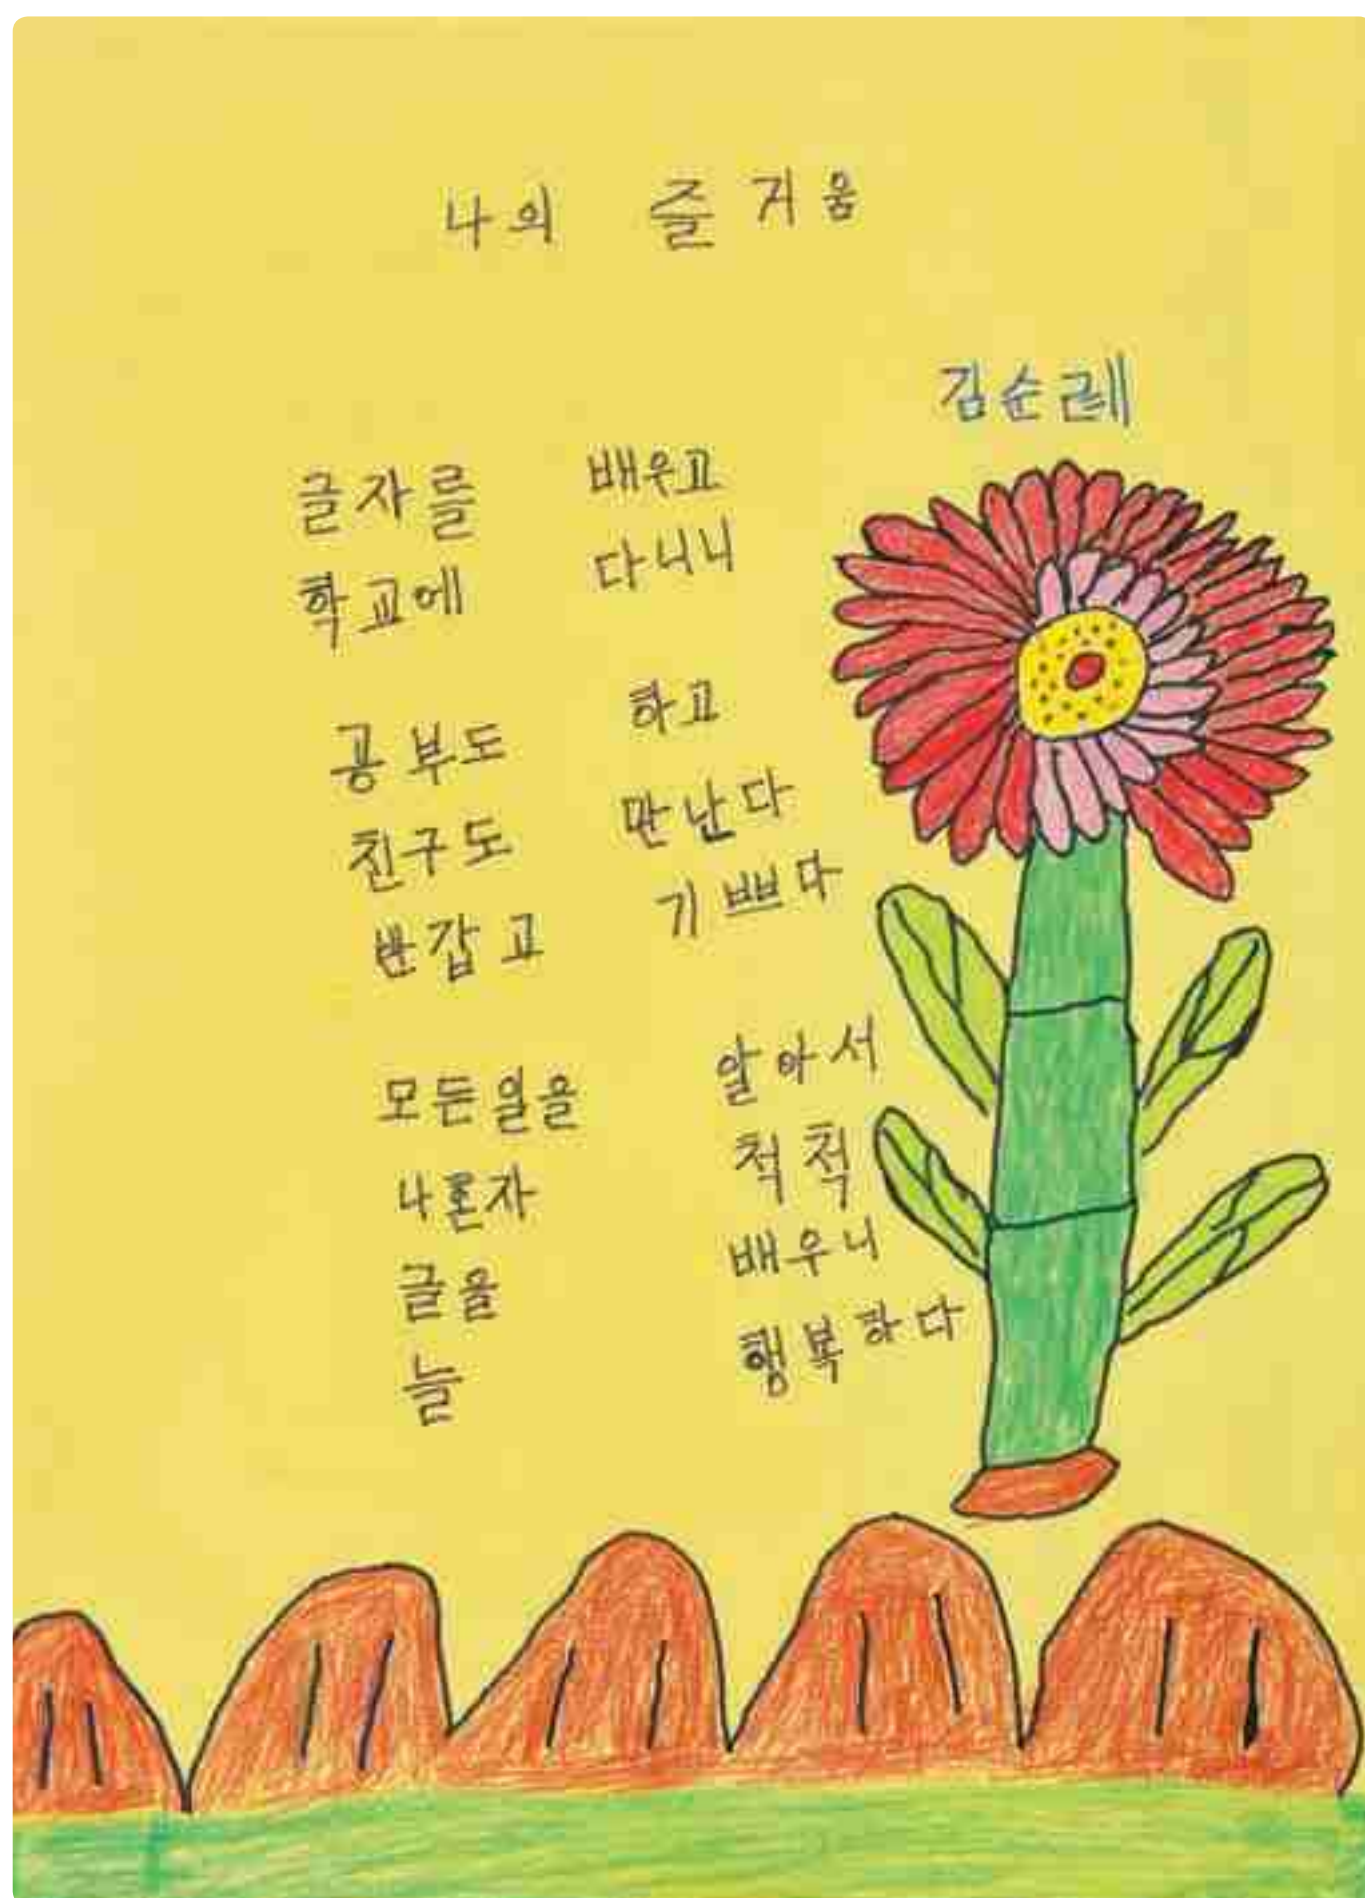 나의 즐거움
김순례
글자를 배우고
학교에 다니니
공부도 하고
친구도 만난다
반갑고 기쁘다
모든일을 알아서
나혼자 척척
글을 배우니
늘 행복하다